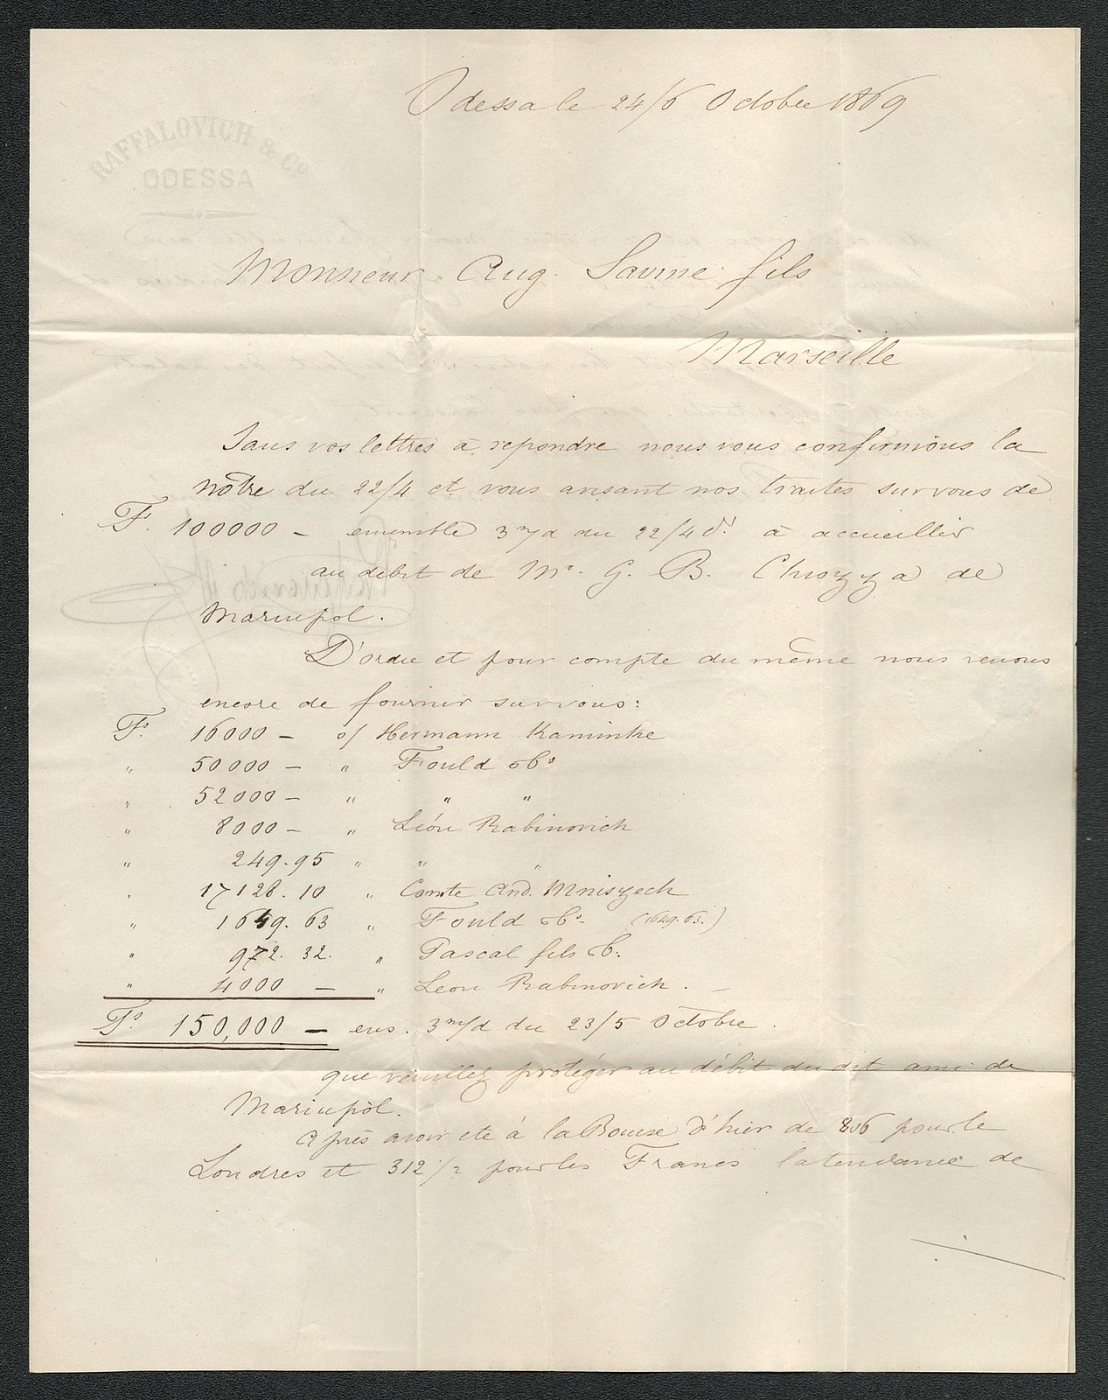 Odessa le 24/6 Octobre 1869
RAFFALOVICH & Co
ODESSA
Monsieur Aug. Savine fils
Marseille
Sans vos lettres à repondre nous vous confirmons la
nôtre du 22/4 et vous avisant nos traites sur vous de
Fs. 100000 – ensemble 3 m/d du 22/4 ct à accueillir
au debit de Mr. G. B. Chiozza de
Mariupol.
D'ordre et pour compte du même nous venons
encore de fournir sur vous:
Fs. 16000 – o/ Hermann Kaminke
" 50000 – " Fould & Co
" 52000 – " " "
" 8000 – " Léon Rabinovich
" 249.95 " " "
" 17128.10 " Comte And. Mniszech
" 1649.63 " Fould & Co. (1649.63.)
" 972.32. " Pascal fils & C.
" 4000 – " Leon Rabinovich. –
Fs. 150,000 – ens. 3 m/d du 23/5 Octobre.
que veuillez protéger au débit du dit ami de
Mariupol.
Après avoir eté à la Bourse d'hier de 806 pour le
Londres et 312 1/2 pour les Francs la tendance de